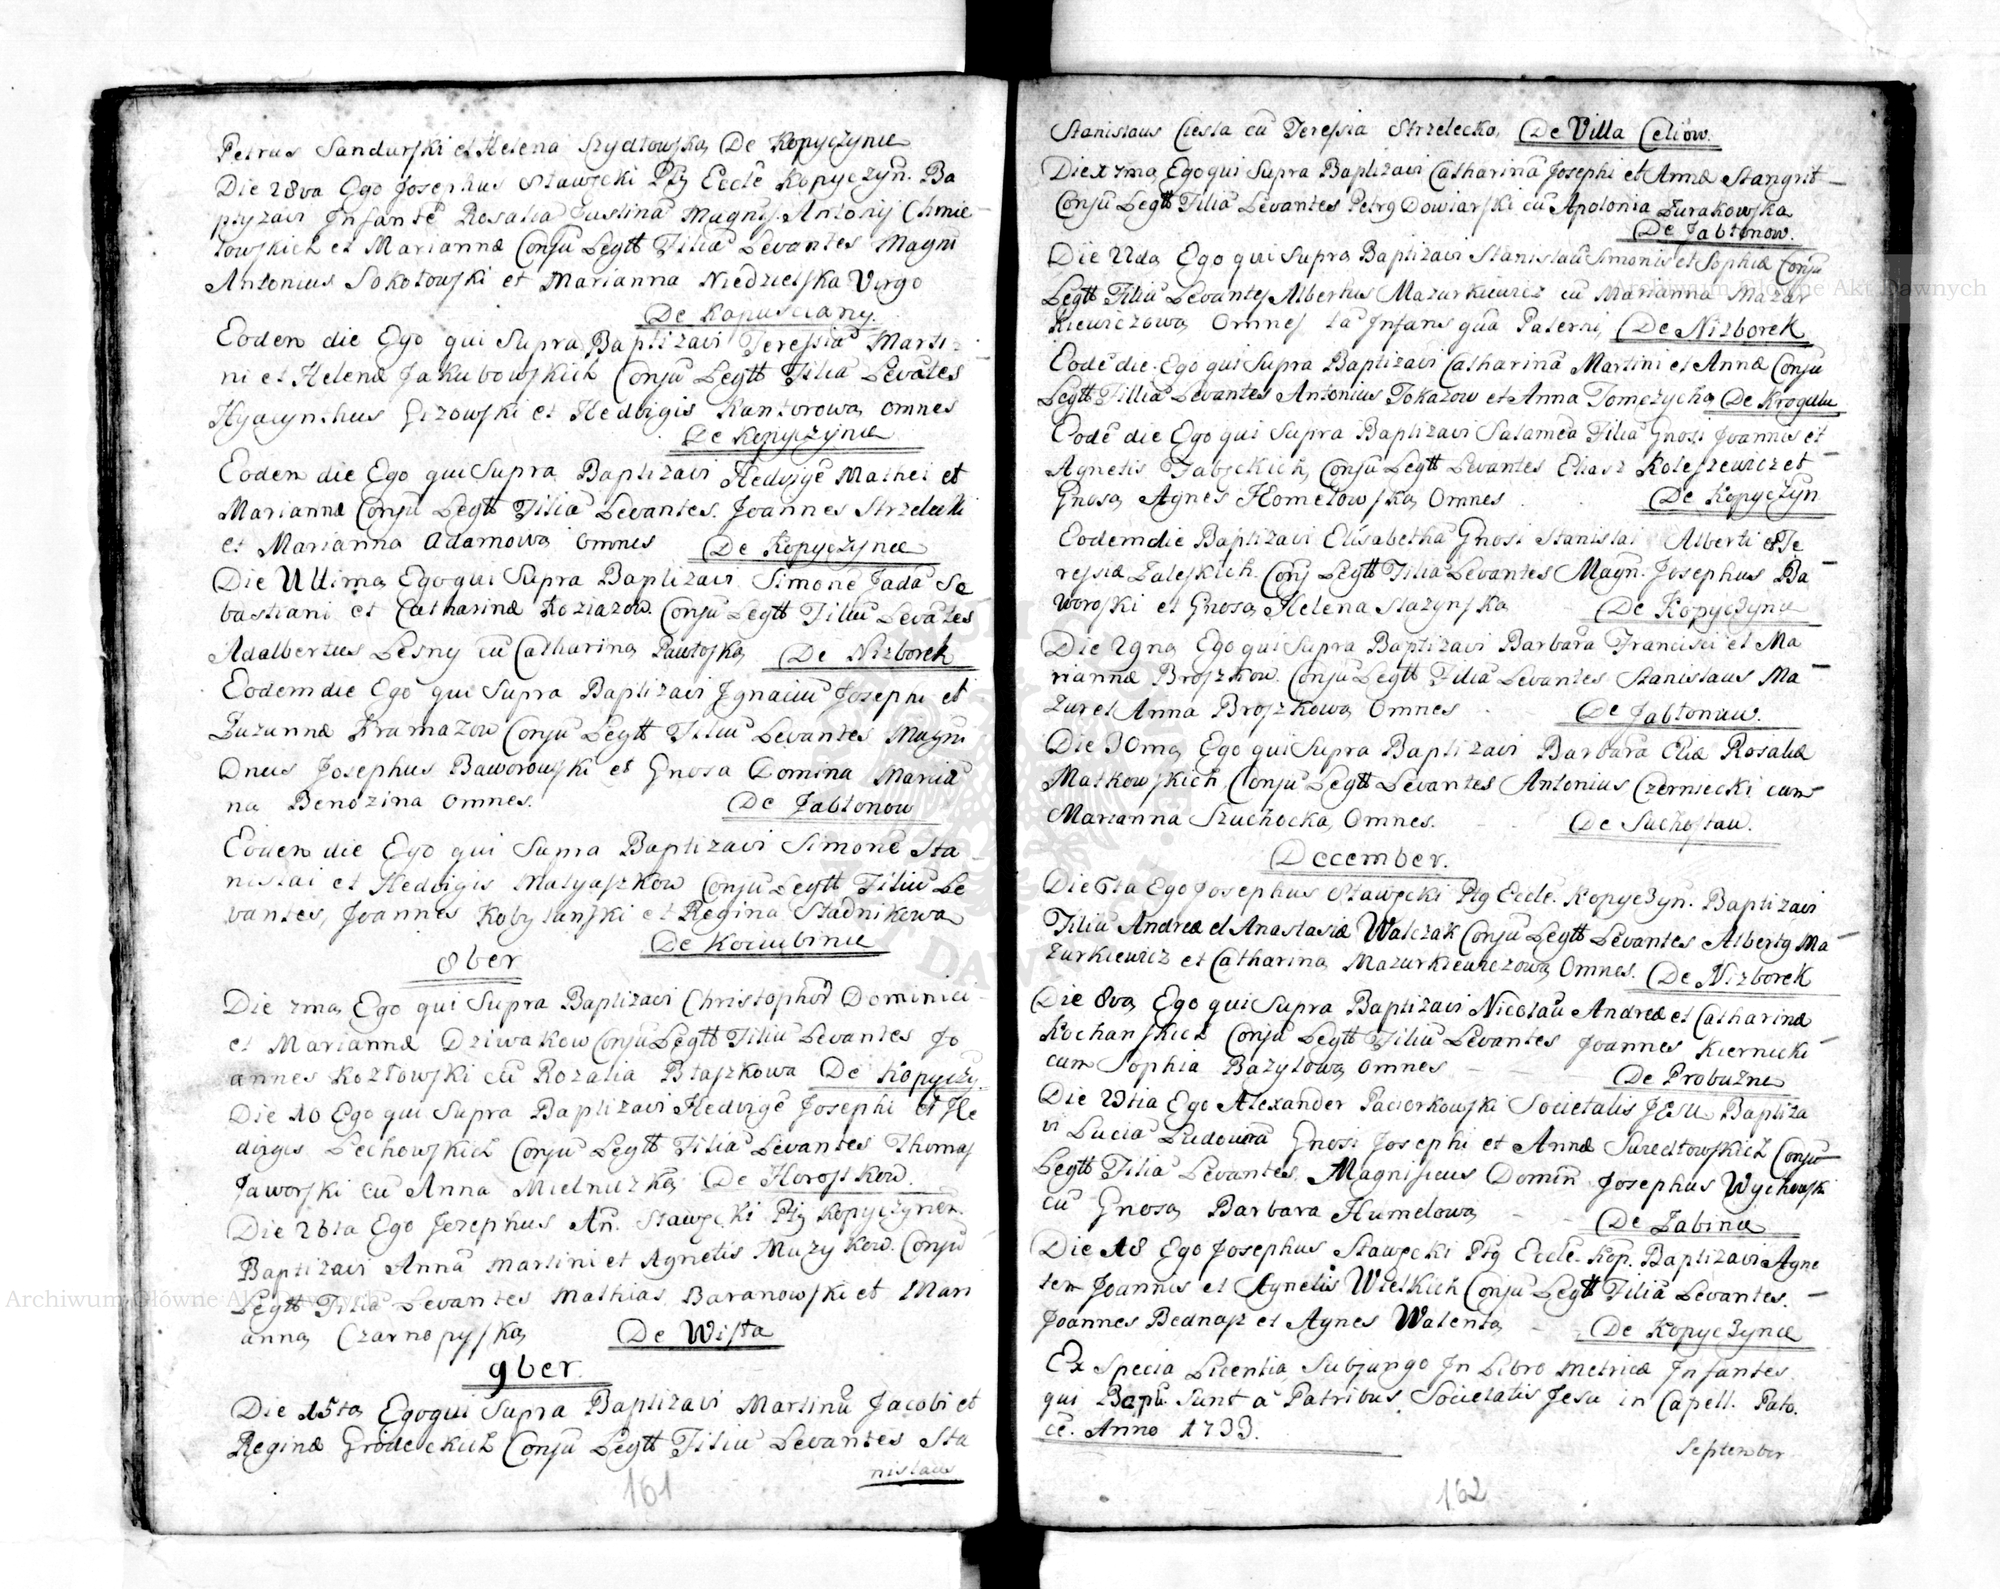 Petrus Sandurski et Helena Szydłowska De Kopyczynce
Die 28va Ego Josephus Sławęcki Ptg Eccle Kopyczyn. Ba
ptyzavi Infante Rosalia Justina Magnif. Antonij Chmie-
lowskich et Mariannæ Conju Legtt Filia Levantes Magni
Antonius Sokołowski et Marianna Niedzielska Virgo
De Kopuściany.
Eoden die Ego qui Supra Baptizavi Teressia Marti-
ni et Helenæ Jakubowskich Conju Legtt Filia Levātes
Hyacynthus Gizowski et Hedvigis Kantorowa omnes
De Kopyczynce
Eoden die Ego qui Supra Baptizavi Hedvige Mathei et
Mariannæ Conju Legtt Filia Levantes. Joannes Strzelecki
et Marianna Adamowa omnes De Kopyczynce
Die Ultima Ego qui Supra Baptizavi Simone Jada Se
bastiani et Catharinæ Koziazow. Conju Legtt Filiu Levātes
Adalbertus Lesny cū Catharina Pawłoska De Nizborek
Eodem die Ego qui Supra Baptizavi Ignaciū Josephi et
Zuzannæ Kramazow Conju Legtt Filiu Levantes Magni
Dneus Josephus Baworowski et Gnosa Domina Mariā
na Benozina omnes. De Jabłonow
Eoden die Ego qui Supra Baptizavi Simonē Sta-
nislai et Hedvigis Matyaszkow Conju Legtt Filiu Le
vantes, Joannes Kobylanski et Regina Stadnikowa
De Kociubince
8ber
Die 7ma Ego qui Supra Baptizavi Christophor Dominici-
et Mariannæ Dziwakow Conju Legtt Filiu Levantes Jo
annes Kozłowski cū Rozalia Błaszkowa De Kopyczy.
Die 10 Ego qui Supra Baptizavi Hedvige Josephi et He
dvigis Lechowskich Conju Legtt Filia Levantes Thomas
Jaworski cū Anna Mielniczka De Horostkow.
Die 26ta Ego Jozephus An. Sławęcki Ptg Kopyczynen.
Baptizavi Annā Martini et Agnetis Muzykow. Conju
Legtt Filiā Levantes Mathias Baranowski et Mari
anna Czarnopyska De Wista
9ber.
Die 15ta Ego qui Supra Baptizavi Martinū Jacobi et
Reginæ Grodeckich Conju Legtt Filiu Levantes Sta
nislaus
161
Stanislaus Ciesla cū Teressia Strzelecka, De Villa Celiow.
Die 17ma Ego qui Supra Baptizavi Catharinā Josephi et Annæ Stangrit-
Conju Legtt Filiā Levantes Petrg Dowiarski cū Apolonia Zurakowska
De Jabłonow.
Die 22da Ego qui Supra Baptizavi Stanislaū Simonis et Sophiæ Conju
Legtt Filiū Levantes Albertus Mazurkiewicz cū Marianna Mazur
kiewiczowa Omnes ta Infans quā Paterni, De Nizborek
Eodē die Ego qui Supra Baptizavi Catharinā Martini et Annæ Conju
Legtt Filliā Levantes Antonius Tokazow et Anna Tomczycha De Krogulec
Eodē die Ego qui Supra Baptizavi Salameā Filiā Gnosi Joannis et
Agnetis Jabęckich, Conju Legtt Levantes Eliasz Koleszewicz et
Gnosa Agnes Hometowska Omnes De Kopyczyn
Eodem die Baptizavi Elisabethā Gnosi Stanislai Alberti et Te
ressiæ Zaleskich. Conj Legtt Filiā Levantes Magn. Josephus Ba-
woroski et Gnosa Helena Stazynska De Kopyczynce
Die 29na Ego qui Supra Baptizavi Barbarā Francisci et Ma
riannæ Broszkow. Conju Legtt Filiā Levantes Stanislaus Ma-
zur et Anna Broszkowa Omnes De Jabłonow.
Die 30ma Ego qui Supra Baptizavi Barbarā Eliæ Rosaliæ
Matkowskich Conju Legtt Levantes Antonius Czerniecki cum
Marianna Szuchocka, Omnes. De Suchostaw.
December.
Die 6ta Ego Josephus Sławęcki Ptg Eccle. Kopyczyn. Baptizavi
Filiū Andreæ et Anastasiæ Walczak Conju Legtt Levantes Albertg Ma-
zurkiewicz et Catharina Mazurkiewiczowa Omnes. De Nizborek
Die 8va Ego qui Supra Baptizavi Nicolaū Andreæ et Catharinæ
Kochanskich Conju Legtt Filiū Levantes Joannes Kiernicki-
cum Sophia Bazylowa omnes De Probuzne
Die 23tia Ego Alexander Paciorkowski Societatis JESU Baptiza
vi Luciā Ludovicā Gnosi Josephi et Annæ Swiedłowskich Conju
Legtt Filiā Levantes. Magnificus Domin Josephus Wychowski
cū Gnosa Barbara Humelowa De Zabince
Die 18 Ego Josephus Sławęcki Ptg Eccle. Kop. Baptizavi Agne
ten Joannis et Agnetis Wielkich Conju Legtt Filiā Levantes.
Joannes Bednasz et Agnes Walenta De Kopyczynce
Ex Specia Licentia Subjungo In Libro Metricæ Infantes.
qui Bapti. Sunt a Patribus Societatis Jesu in Capell. Pato.
ce. Anno 1733.
September
162
Archiwum Główne Akt Dawnych
Archiwum Główne Akt Dawnych